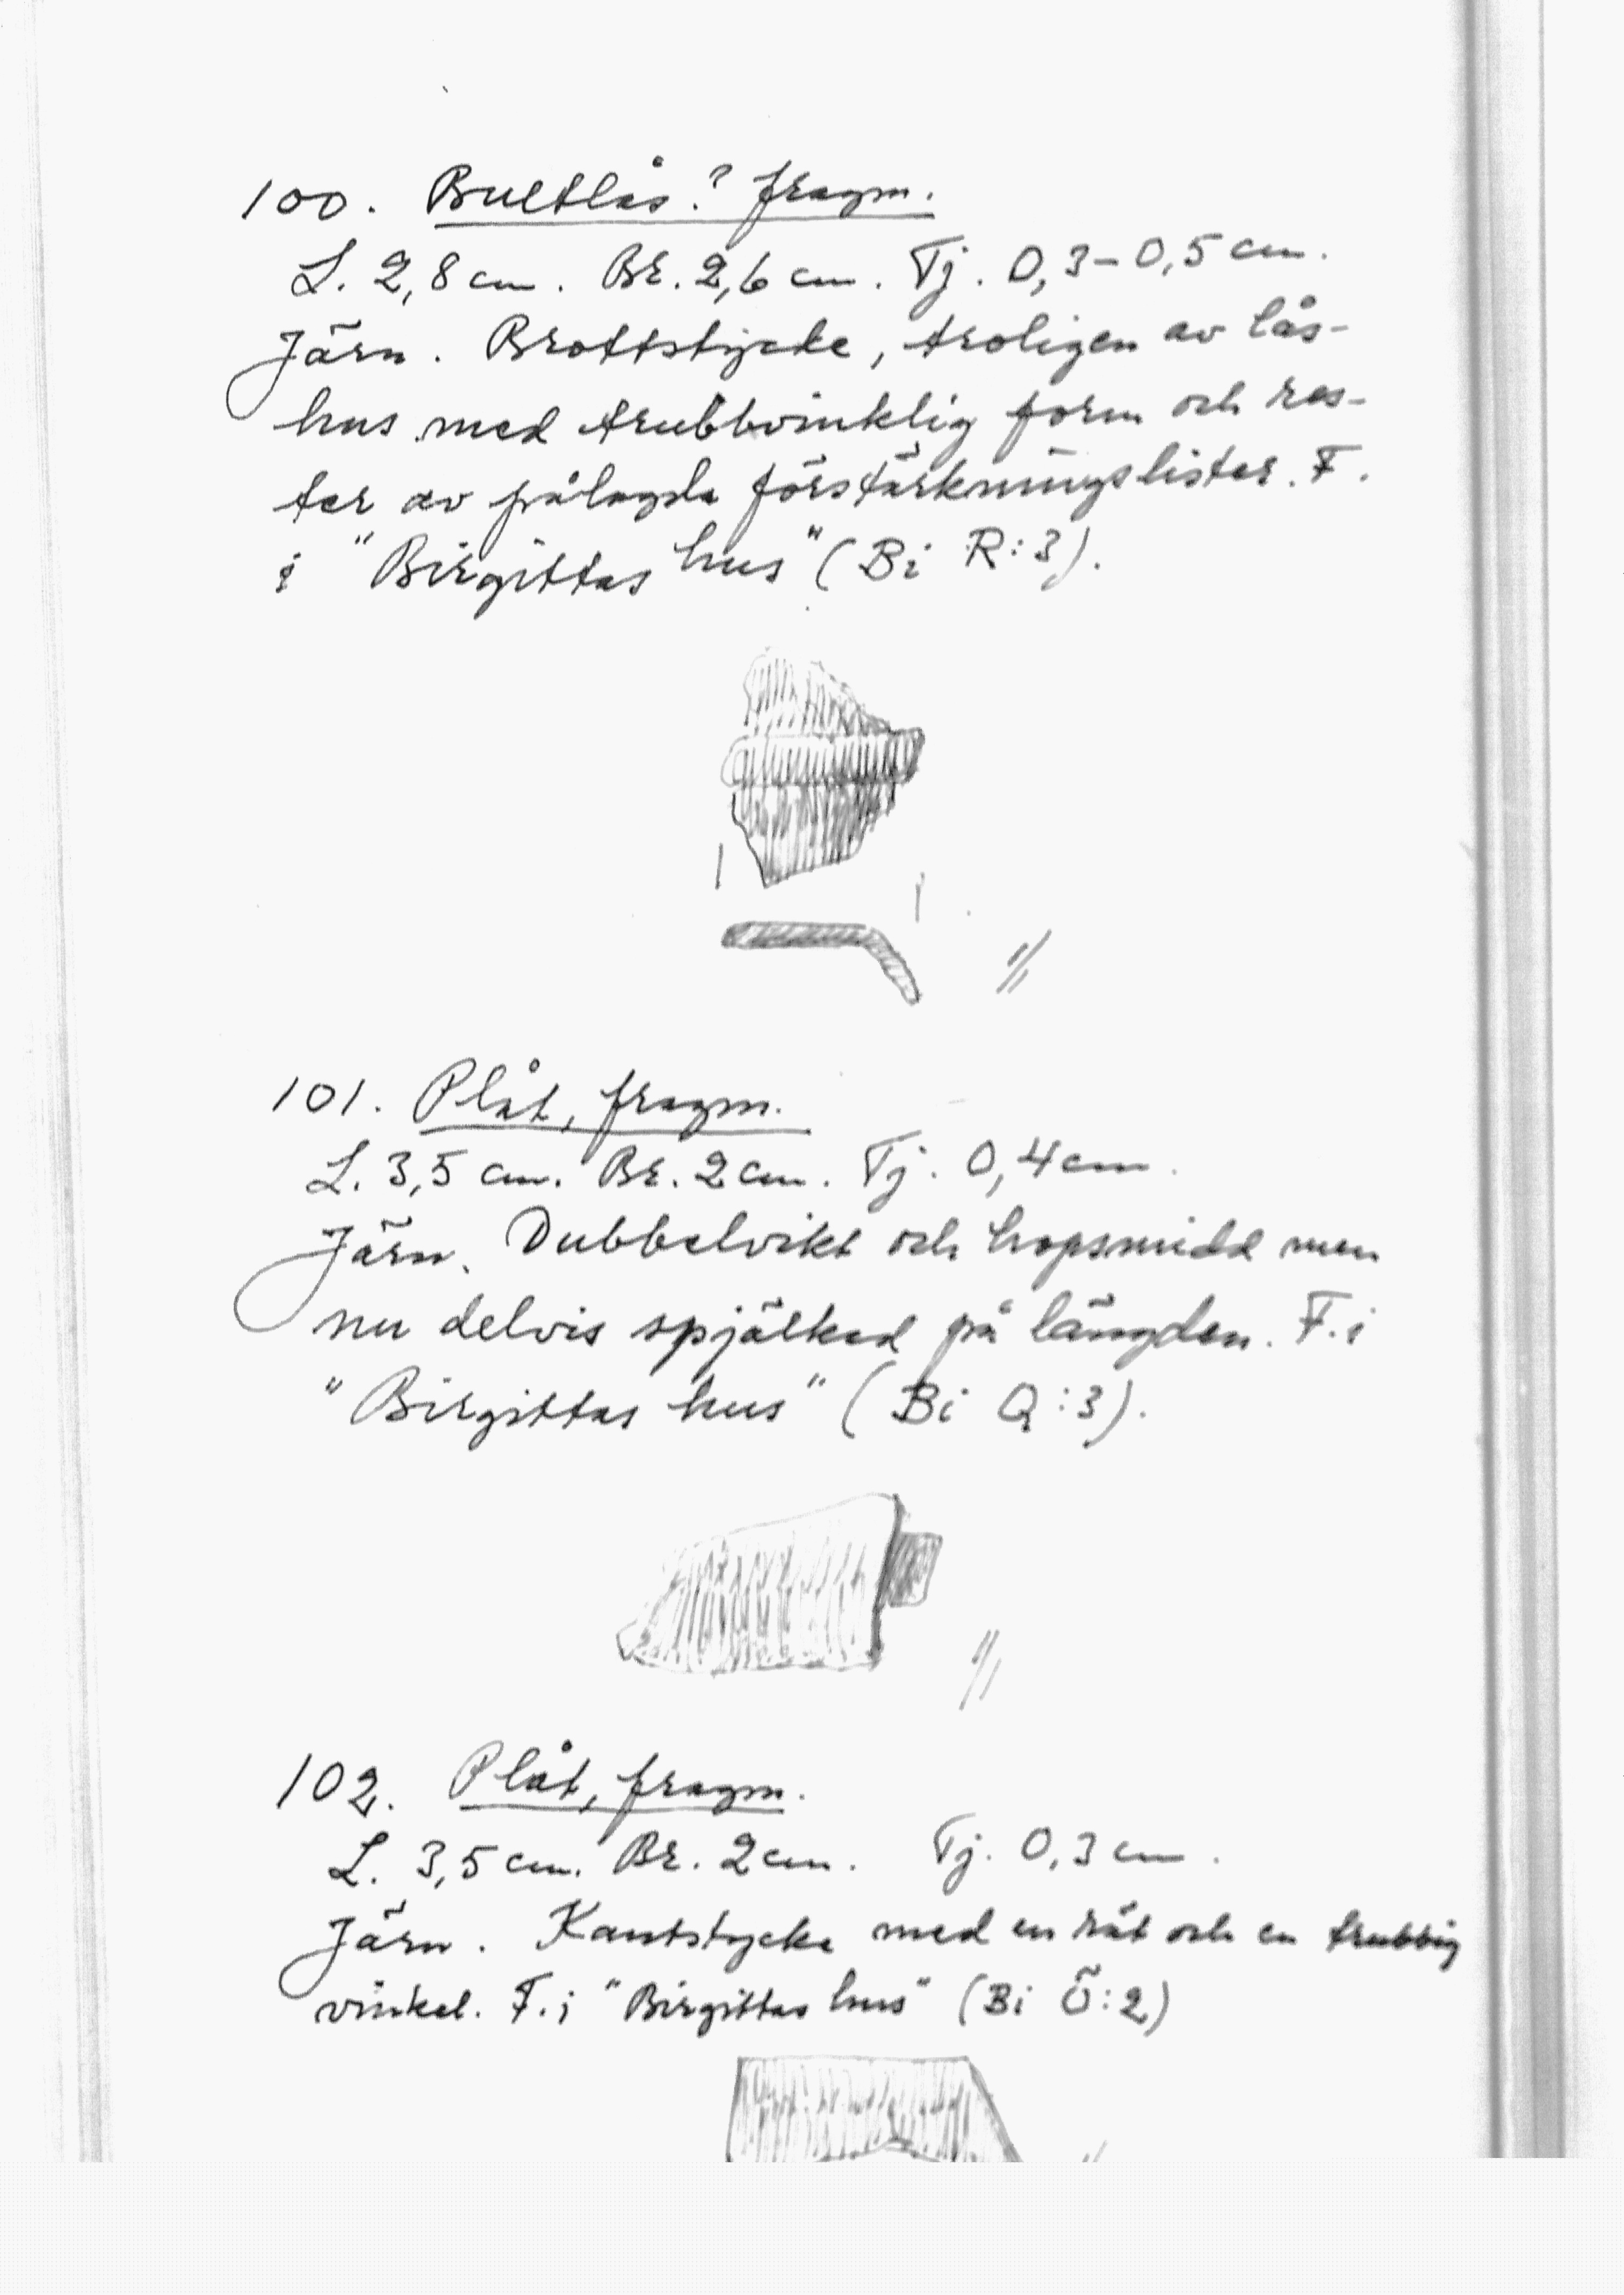 100. Bultlås? fragm.
L. 2,8 cm. Br. 2,6 cm. Tj. 0,3–0,5 cm.
Järn. Brottstycke, troligen av lås-
hus med trubbvinklig form och res-
ter av pålagda förstärkningslister. F.
i "Birgittas hus" (Bi R:3).
1/1
101. Plåt, fragm.
L. 3,5 cm. Br. 2 cm. Tj. 0,4 cm.
Järn. Dubbelvikt och hopsmidd men
nu delvis spjälkad på längden. F. i
"Birgittas hus" (Bi Q:3).
1/1
102. Plåt, fragm.
L. 3,5 cm. Br. 2 cm. Tj. 0,3 cm.
Järn. Kantstycke med en rät och en trubbig
vinkel. F. i "Birgittas hus" (Bi Ö:2)